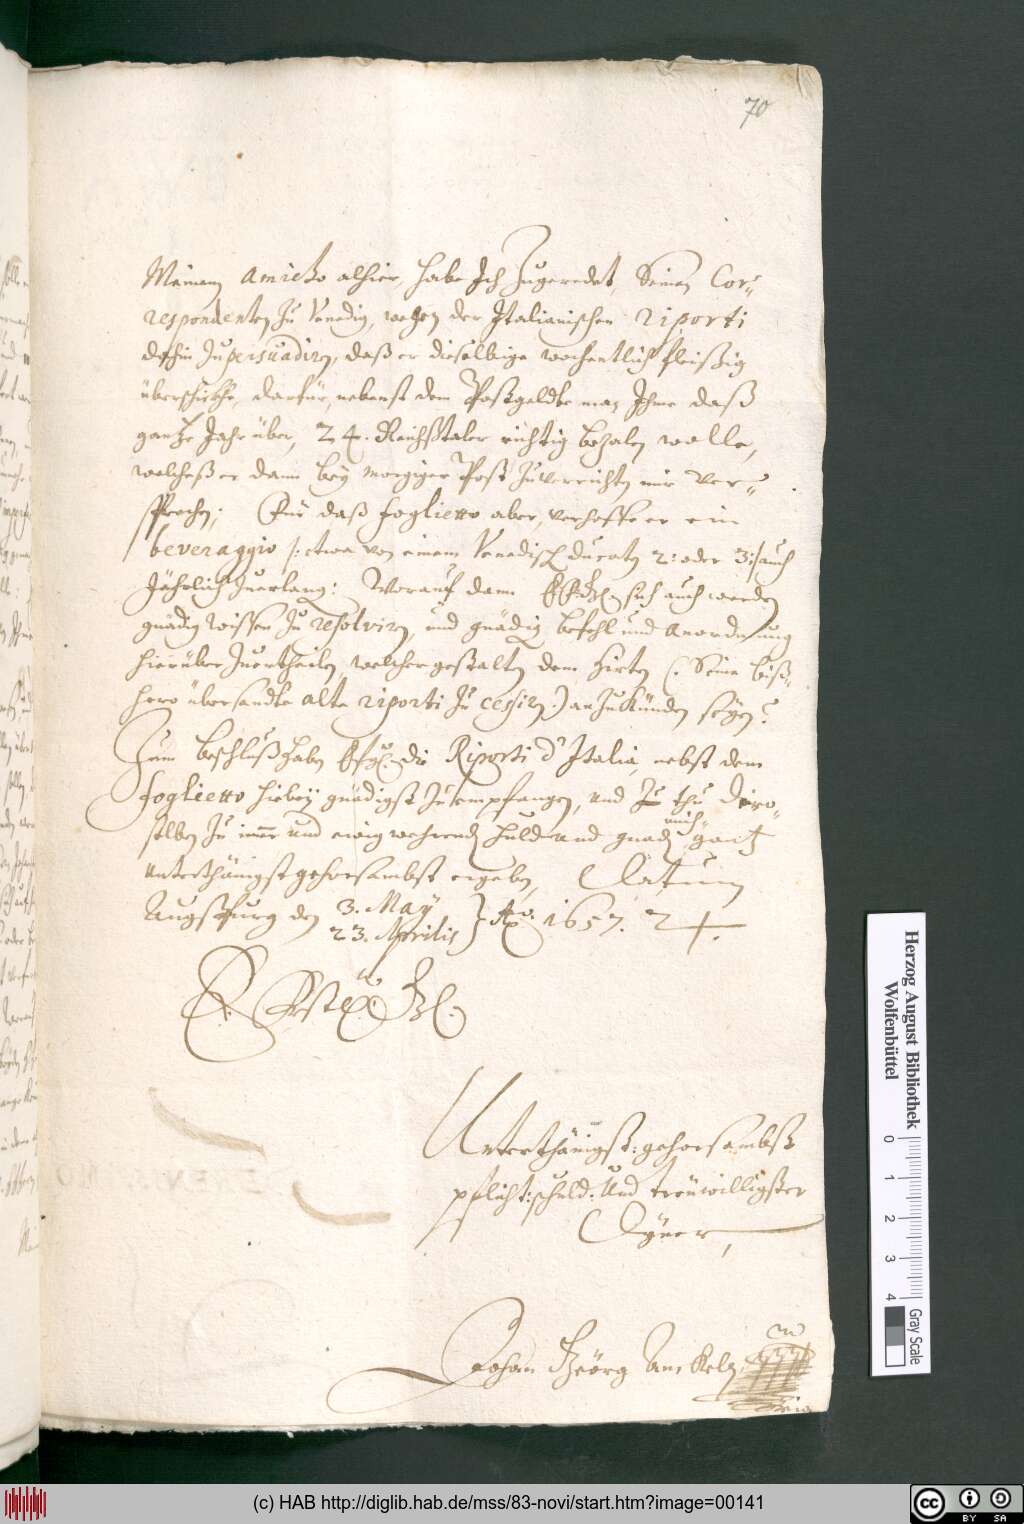 70
Meinem Amicko alhier, habe Ich Zugeredet, Seinen Cor-
respondenten Zu Venedig, wegen der Italianischen riporti
dahin Zu persuadirn, daß er dieselbige wochentlich fleißig
überschickhe, darfür, nebenst dem Postgeldte man Ihme daß
gantze Jahr über, 24. Reichßtaler richtig bezalen wolle,
welcheß er dann bey morgiger Post Zuverrichten mir ver-
sprochen; Für daß foglietto aber, verhoffe er ein
beveraggio /: etwa von einem Venedisch ducaten 2: oder 3:/ auch
Jährlich Zuerlang: Worauf dann sich auch werden
gnädig wissen Zu resolvirn, und gnädig befehl und Anordnung
hierüber Zuertheilen welchergestalten dem Hirten (: Seine biß-
hero übersandte alte riporti Zu cessirn:) anZukünden seyen?
Zum beschluß haben die Riporti d'Italia, nebst dem
foglietto hiebey gnädigst Zu empfangen, und Zu thu Dero-
selben Zu immer und ewig wehrenden huld und gnaden mich gantz
unterthänigst gehorsambst ergeben, Datum
Augspurg den 3. May
23. Aprilis } Ao. 1657.
Unterthänigst: gehorsambst
pflicht: schuld: Und treüwilligster
Dyner,
Johan Geörg Anckelen
Herzog August Bibliothek
Wolfenbüttel
0 1 2 3 4
Gray Scale
(c) HAB http://diglib.hab.de/mss/83-novi/start.htm?image=00141
cc BY SA